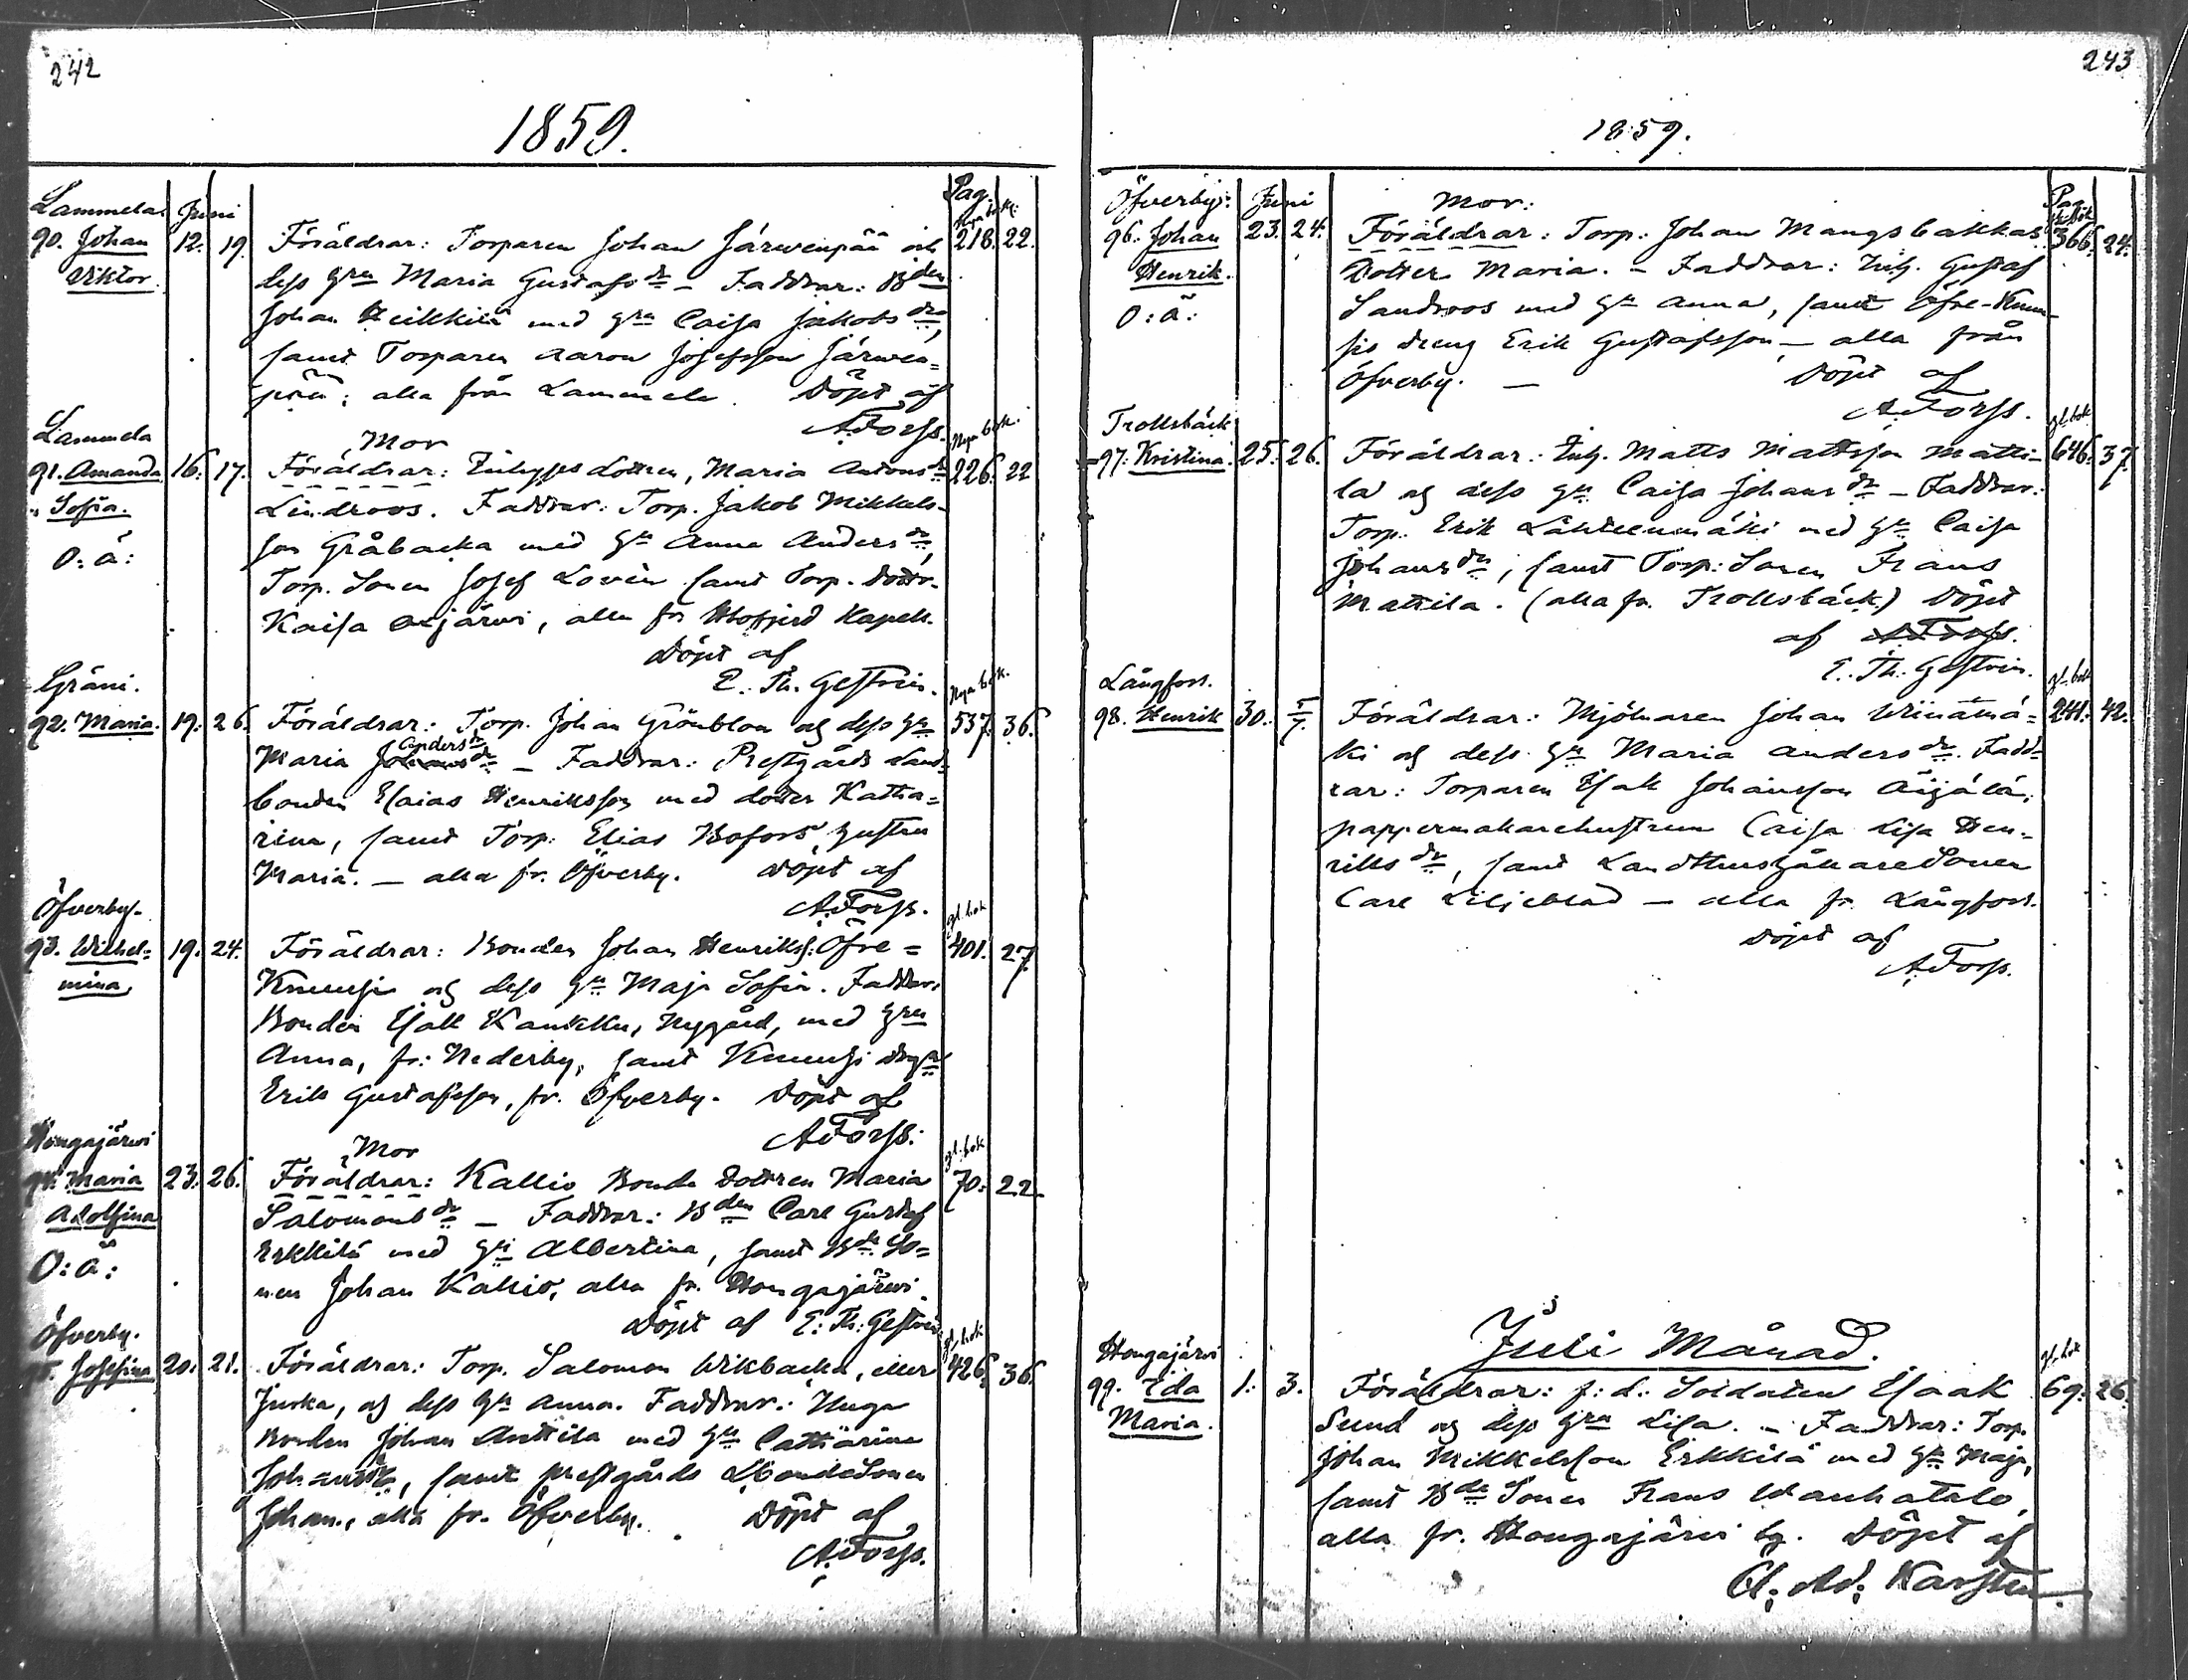 242
1859.
Lammela Juni Pag.
Nya bok.
90. Johan 12. 19. Föräldrar: Torparen Johan Järwenpää och 218. 22.
Viktor. dess hru Maria Gustafs dr – Faddrar: Bden
Johan Heikkilä med hru Caisa Jakobs dr,
samt Torparen Aaron Josefsson Järwen=
pää; alla från Lammela. Döpt af
A. Forss.
Lammela Mor Nya bok.
91. Amanda 16. 17. Föräldrar: Inhyses dottren, Maria Antons dr 226. 22
Sofia. Lindroos. Faddrar: Torp. Jakob Mikkels-
O: ä: son Gråbacka med h. Anna Anders dr,
Torp. Sonen Josef Lovén samt Torp. dottr.
Kaisa järwi, alla fr Kapell.
Döpt af
E. Th. Gestrin.
Gräni. Nya bok.
92. Maria. 19. 26. Föräldrar: Torp. Johan Grönblom och dess h.
537. 36.
Anders dr
Maria Johans dr – Faddrar: Prestgårds Land-
bonden Esaias Henriksson med dotter Katha=
rina, samt Torp. Elias Bofors hustru
Maria. – alla fr. Öfverby. Döpt af
A. Forss.
Öfverby. gl. bok
93. Wilhel= 19. 24. Föräldrar: Bonden Johan Henrikss: Öfre= 401. 27
mina, och dess h. Maja Sofia. Faddrar:
Bonden Isak Kaukku, Nygård, med hru
Anna, fr: Nederby, samt
Erik Gustafsson, fr. Öfverby. Döpt af
A. Forss.
Hongajärwi Mor gl. bok
94. Maria 23. 26. Föräldrar: Kallio Bonde dottren Maria 70. 22.
Adolfina Salomons dr – Faddrar: Bden Carl Gustaf
O: ä: Erkkilä med h. Albertina, samt Bde So=
nen Johan Kallio, alla fr. Hongajärwi.
Döpt af E. Th. Gestrin
Öfverby. gl. bok
Josefina 20. 21. Föräldrar: Torp. Salomon Wikbacka, eller 426. 36.
Juska, och dess h. Anna. Faddrar: Unga
Bonden Johan Anttila med h. Catharina
Johansdr, samt prestgårds Lbondesonen
Johan, alla fr. Öfverby. Döpt af
A. Forss.
243
1859.
Öfverby: Juni Mor: Pag.
96. Johan 23. 24. Föräldrar: Torp. Johan Mangsbackas 366. 24.
Henrik. Dotter Maria. – Faddrar: Inh. Gustaf
O: ä: Sandroos med h. Anna, samt Öfre-
dreng Erik Gustafsson – alla från
Öfverby. – Döpt af
A. Forss.
Trollsbäck gl. bok
97. Kristina. 25. 26. Föräldrar: Inh. Matts Mattsson Matti- 646. 37.
la och dess h. Caisa Johans dr – Faddrar:
Torp. Erik Lähteenmäki med h. Caisa
Johans dr; samt Torp: Sonen Frans
Mattila. (alla fr. Trollsbäck) Döpt
af A. Forss.
E. Th. Gestrin.
Långfors. gl. bok
98. Henrik 30. 3/7. Föräldrar: Mjölnaren Johan Wiinamä= 241. 42.
ki och dess h. Maria Anders dr. Fadd-
rar: Torparen Isak Johansson Äijälä,
pappermakarehustrun Caisa Lisa Hen-
riks dr, samt Sonen
Carl Liljeblad – alla fr. Långfors.
Döpt af
A. Forss.
Juli Månad.
Hongajärwi gl. bok
99. Ida 1. 3. Föräldrar: f: d: Soldaten Isaak 69. 26
Maria. Sund och dess hru Lisa. – Faddrar: Torp.
Johan Mikkelsson Erkkilä med h. Maja,
samt Bde Sonen Frans Wanhatalo,
alla fr. Hongajärwi by. Döpt af
Cl: Ad: Karsten.